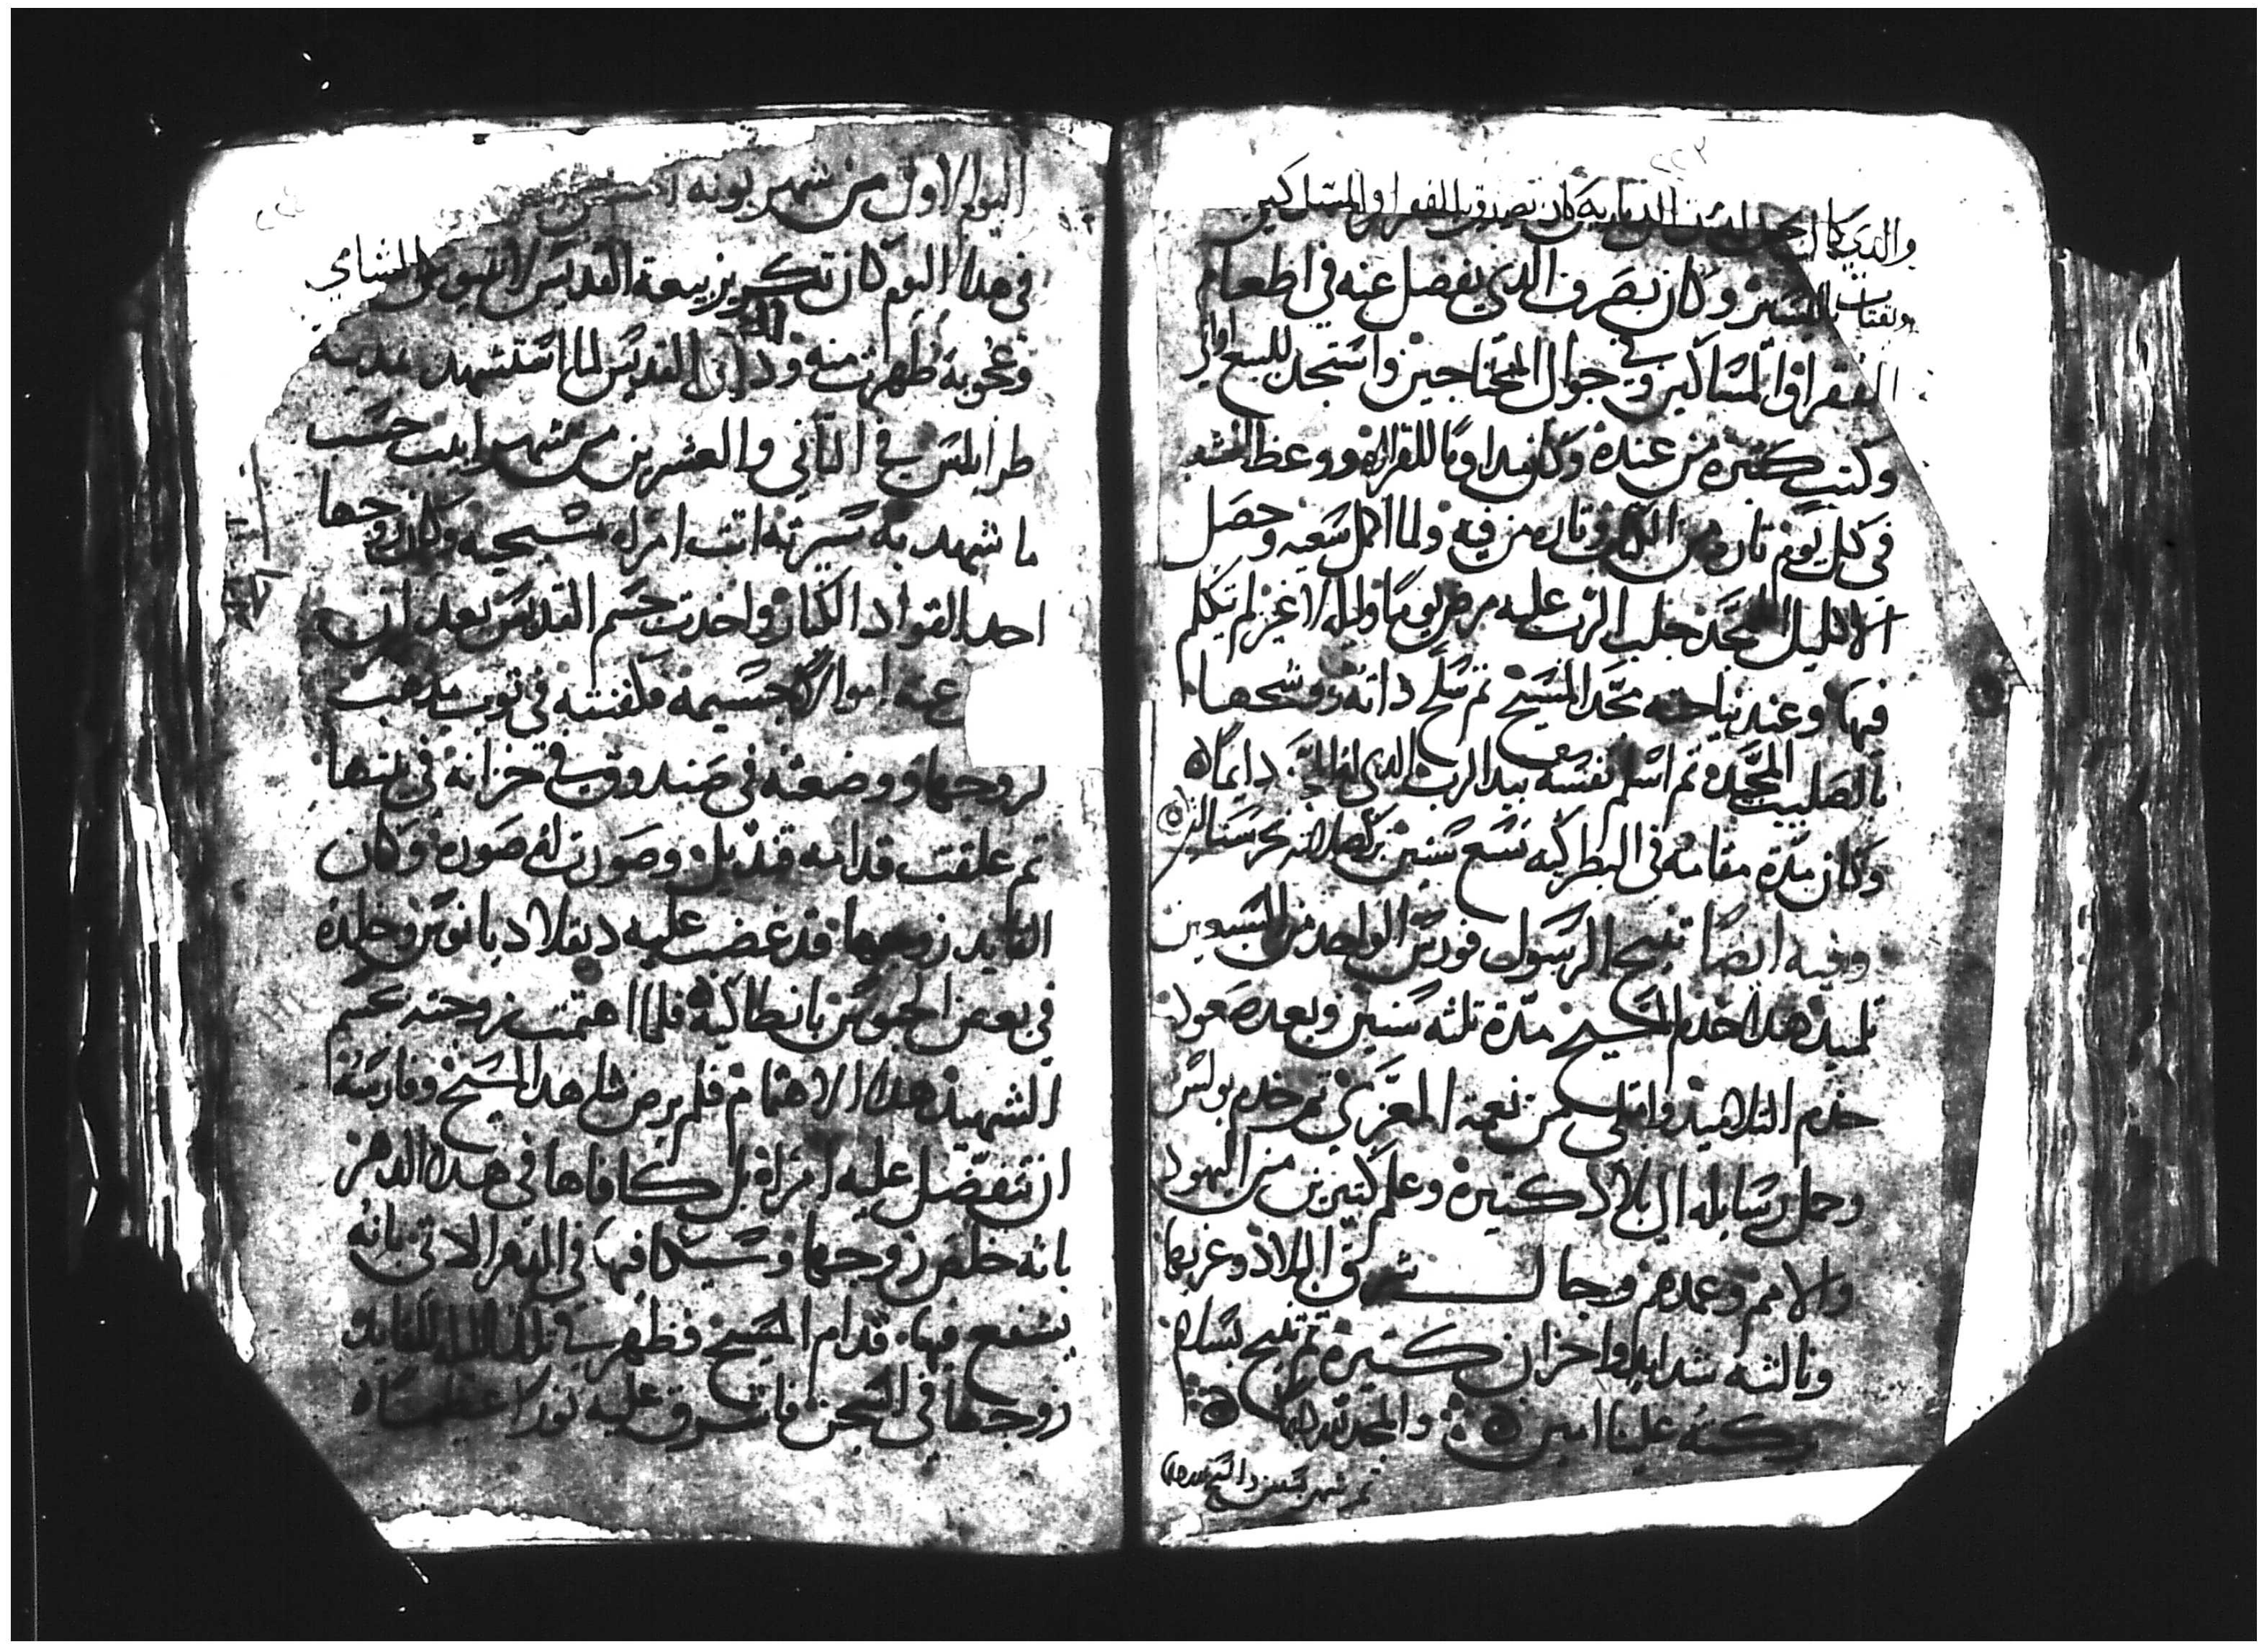 والدي كان يحمل لدير الديارية كان تصدق به للفقرا والمساكين
ويقتات باليسير وكان يصرف الدي يفضل عنه في اطعام
الفقرا والمساكين وفي حوال المحتاجين واستجد للبيع اواني
وكتب كتيره من عنده وكان مداوما للقراه ووعظ الشعب
في كل يوم تاره من الكتاب وتاره من فيه ولما اكمل سعيه وحصل
الاكليل المجد جلب الرب عليه مرض يوما وليله لا غير لم يتكلم
فيها وعند نياحته مجد المسيح تم صلح داته ورشمها
بالصليب المجيد تم اسلم نفسه بيد الرب الدي له المجد دايما
وكان مدة مقامه في البطركيه تسع سنين بركة صلاته تحرسنا امين
وفيه ايضا تنيح الرسول فورس الواحد من السبعين
تلميد هدا خدم المسيح مدة تلته سنين وبعد صعوده
خدم التلاميد وامتلى من نعمة المعزي تم خدم بولس
وحمل رسايله الى بلاد كتيره وعلم كتيرين من اليهود
والامم وعمدهم وجال شرق البلاد وغربها
ونالته شدايد واحزان كتيره تم تنيح بسلام
بركته علينا امين والمجد لله دايما
تم شهر بشنس والسبح لله
اليوم الاول من شهر بونه
في هدا اليوم كان تكريز بيعة القديس لاونتيوس الشامي
وعجوبة ظهرت منه ودلك ان القديس لما استشهد بمدينة
طرابلس في التاني والعشرين من شهر ابيب حسب
ما شهد به سيرته اتت امراه مسيحيه وكان زوجها
احد القواد الكبار واخدت جسم القديس بعد ان
عنه اموالا جسيمه ولفنته في توب مدهب
لزوجها ووضعته في صندوق في خزانه في بيتها
تم علقت قدامه قنديل وصورت له صوره وكان
القايد زوجها قد غضب عليه ديقلاديانوس وخلده
في بعض الحبوس بانطاكيه فلما اهتمت زوجته بجسم
الشهيد هدا الاهتمام فلم يرض مثل هدا المسيح وفارسه
ان تتفضل عليه امراة بل كافاها في هدا الدهر
بانه خلص زوجها وسيكافيها في الدهر الاتي بانه
يشفع فيها قدام المسيح فظهر في تلك الليله للقايد
زوجها في السجن فاشرق عليه نورا عظيما